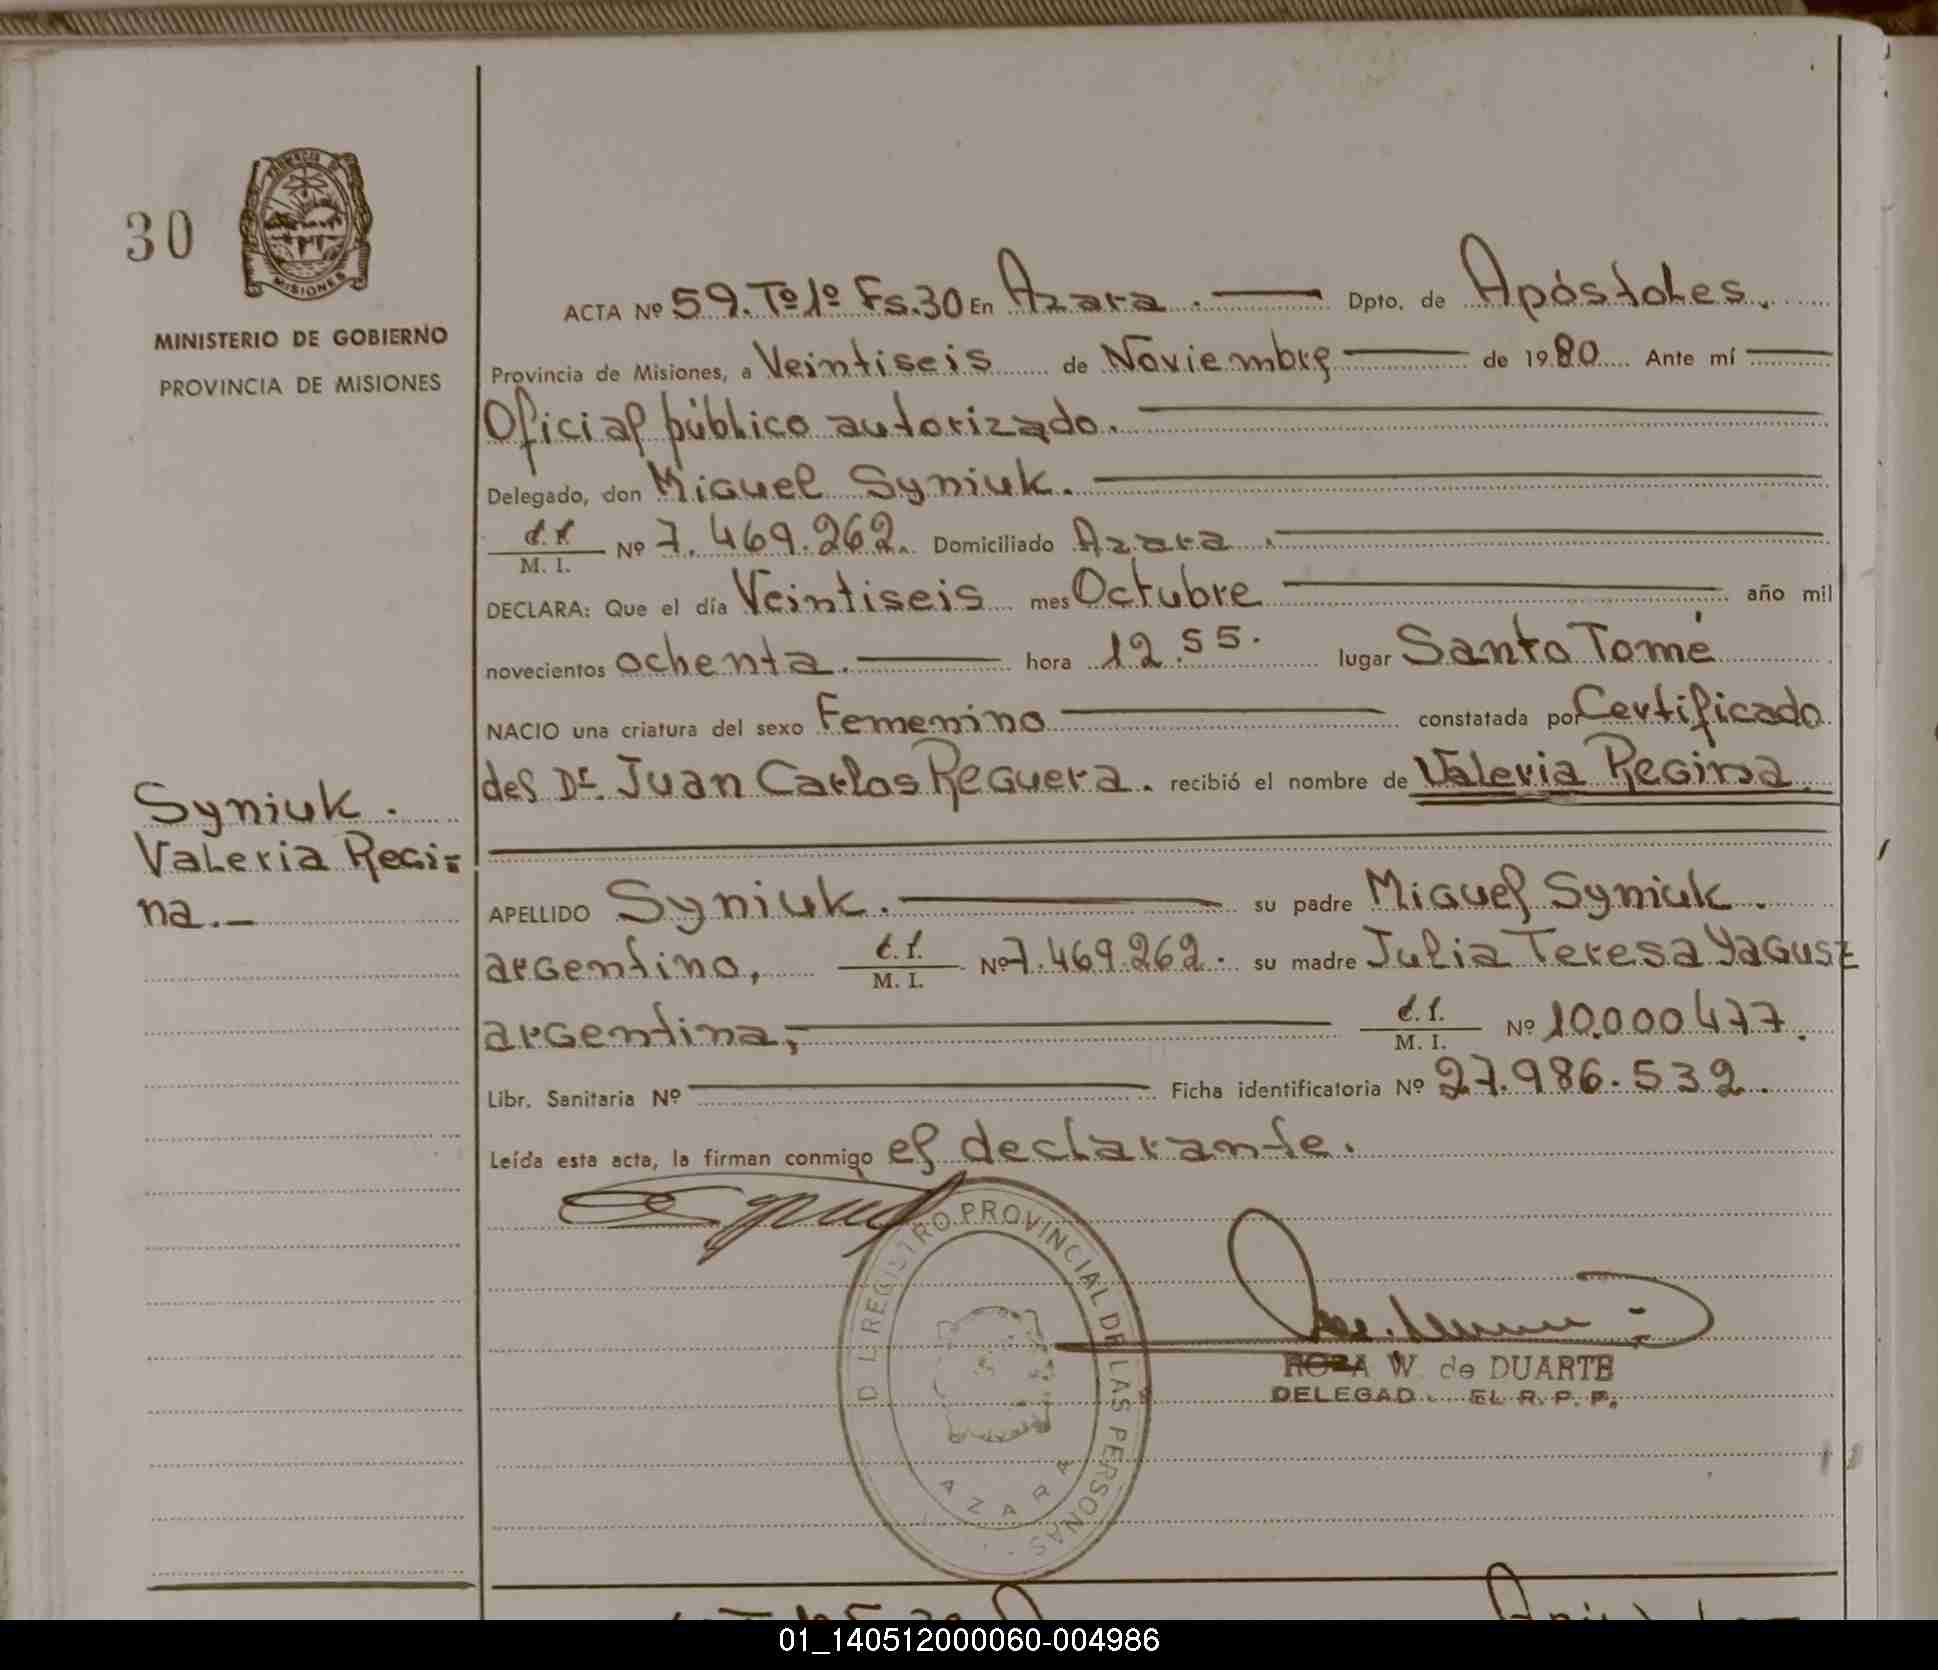 30
MISIONES
MINISTERIO DE GOBIERNO
PROVINCIA DE MISIONES
ACTA Nº 59. Tº 1º Fs. 30 En Azara. Dpto. de Apóstoles.
Provincia de Misiones, a Veintiseis de Noviembre de 1980 Ante mí
Oficial público autorizado.
Delegado, don Miguel Syniuk.
M. I. Nº 7.469.262. Domiciliado Azara.
DECLARA: Que el día Veintiseis mes Octubre año mil
novecientos ochenta. hora 12.55. lugar Santo Tomé
NACIO una criatura del sexo Femenino constatada por Certificado
del Dr. Juan Carlos Reguera. recibió el nombre de Valeria Regina.
Syniuk.
Valeria Regi=
na.-
APELLIDO Syniuk. su padre Miguel Syniuk.
argentino, M. I. Nº 7.469.262. su madre Julia Teresa Yagusz
argentina, M. I. Nº 10.000.477.
Libr. Sanitaria Nº Ficha identificatoria Nº 27.986.532.
Leída esta acta, la firman conmigo el declarante.
REGISTRO PROVINCIAL DE LAS PERSONAS
AZARA
ROZA W. de DUARTE
DELEGAD EL R. P. P.
01_140512000060-004986